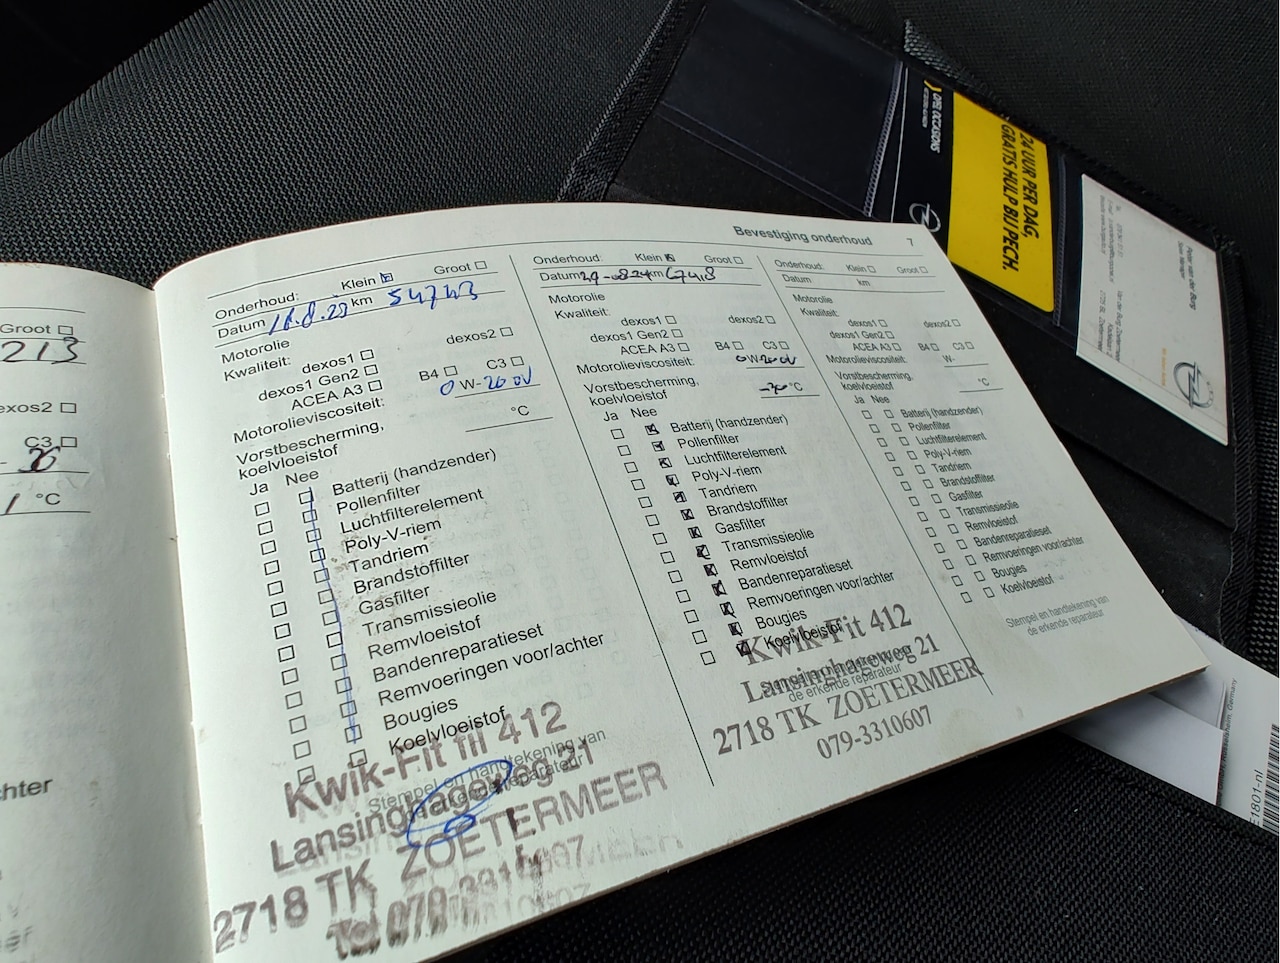 Groot
213
exos2
C3
- 30
°C
chter
Bevestiging onderhoud 7
Onderhoud: Klein Groot
Datum km 54743
Motorolie
Kwaliteit:
dexos1 dexos2
dexos1 Gen2
ACEA A3 B4 C3
Motorolieviscositeit: 0 W-20
Vorstbescherming,
koelvloeistof °C
Ja Nee
Batterij (handzender)
Pollenfilter
Luchtfilterelement
Poly-V-riem
Tandriem
Brandstoffilter
Gasfilter
Transmissieolie
Remvloeistof
Bandenreparatieset
Remvoeringen voor/achter
Bougies
Koelvloeistof
Stempel en handtekening van
de erkende reparateur
Kwik-Fit fil 412
Lansinghageweg 21
2718 TK ZOETERMEER
Tel 079-3310607
Onderhoud: Klein Groot
Datum km
Motorolie
Kwaliteit:
dexos1 dexos2
dexos1 Gen2
ACEA A3 B4 C3
Motorolieviscositeit: 0W20
Vorstbescherming,
koelvloeistof °C
Ja Nee
Batterij (handzender)
Pollenfilter
Luchtfilterelement
Poly-V-riem
Tandriem
Brandstoffilter
Gasfilter
Transmissieolie
Remvloeistof
Bandenreparatieset
Remvoeringen voor/achter
Bougies
Koelvloeistof
Stempel en handtekening van
de erkende reparateur
Kwik-Fit 412
Lansinghageweg 21
2718 TK ZOETERMEER
079-3310607
Onderhoud: Klein Groot
Datum km
Motorolie
Kwaliteit:
dexos1 dexos2
dexos1 Gen2
ACEA A3 B4 C3
Motorolieviscositeit: W-
Vorstbescherming,
koelvloeistof °C
Ja Nee
Batterij (handzender)
Pollenfilter
Luchtfilterelement
Poly-V-riem
Tandriem
Brandstoffilter
Gasfilter
Transmissieolie
Remvloeistof
Bandenreparatieset
Remvoeringen voor/achter
Bougies
Koelvloeistof
Stempel en handtekening van
de erkende reparateur
OPEL OCCASIONS
24 UUR PER DAG,
GRATIS HULP BIJ PECH.
Sales Manager
Germany
E1801-nl